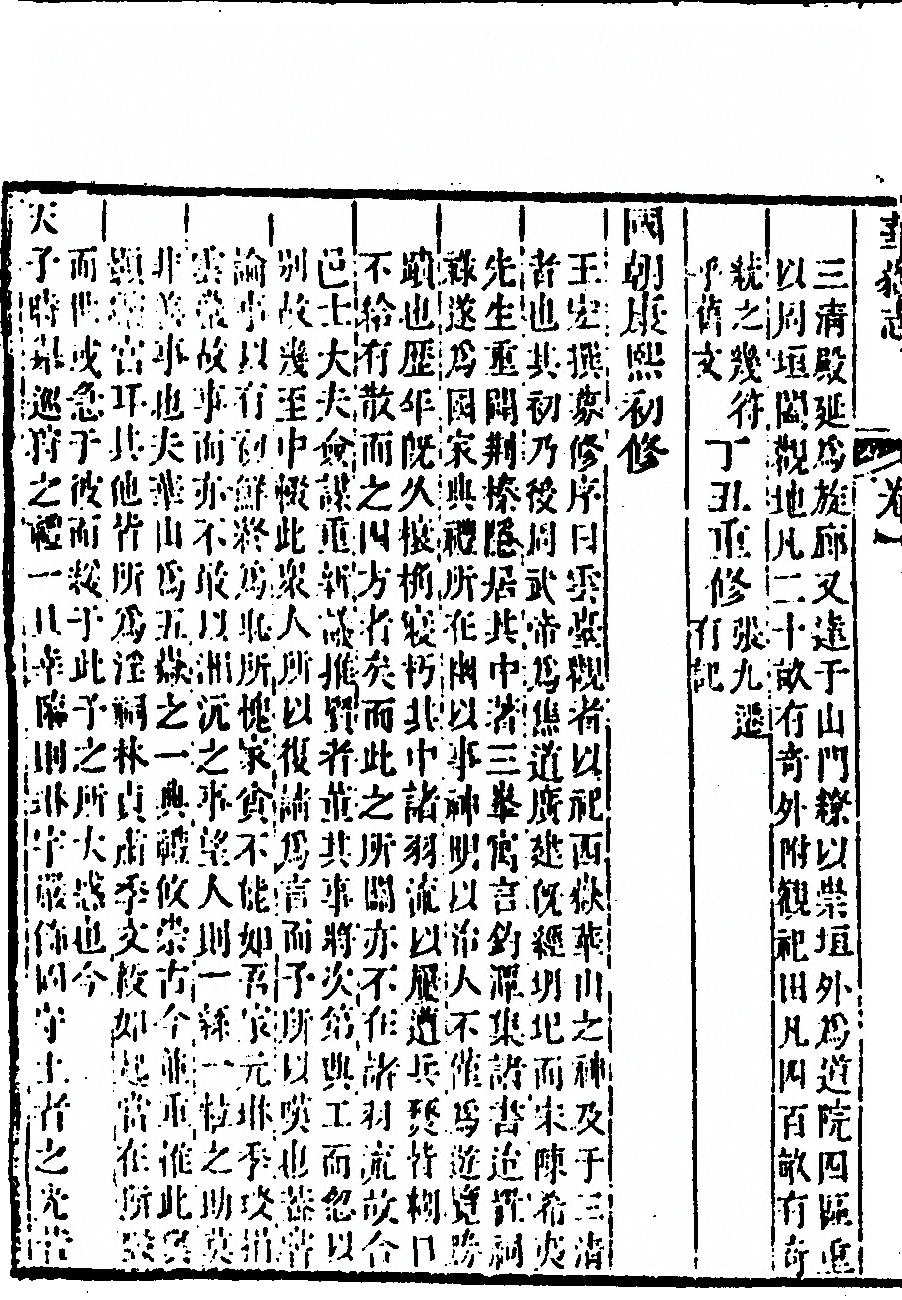 華嶽志 卷一
三清殿延爲旋廊又遶于山門繚以崇垣外爲道院四區重
以周垣闔觀地凡二十畝有奇外附觀祀田凡四百畝有奇
虢之幾符丁丑重修張九選有記
國朝康熙初修
王宏撰募修序曰雲臺觀者以祀西嶽華山之神及于三清
者也其初乃後周武帝爲焦道廣建旣經圮而宋陳希夷
先生重開荆榛隱居其中著三峯寓言釣潭集諸書迨賜祠
祿遂爲國家典禮所在幽以事神明以治人不僅爲遊覽勝
蹟也歷年旣久榱桷寖朽其中諸羽流以屢遭兵燹皆糊口
不給有散而之四方者矣而此之所關亦不在諸羽流故合
邑士大夫僉謀重新議推賢者董其事將次第興工而忽以
別故幾至中輟此衆人所以復請爲言而予所以嘆也
論事以有初鮮終爲恥所愧家貧不能如吾家元琳季琰捐
故事而亦不敢以湮沉之事望人則一椽一甓之助莫
非善事也夫華山爲五嶽之一典禮攸崇古今並重此
官耳其他皆所爲淫祠林
而世或急于彼而緩于此予之所大惑也今
天子時舉巡狩之禮一旦幸臨則琳宇嚴飾固守土者之光